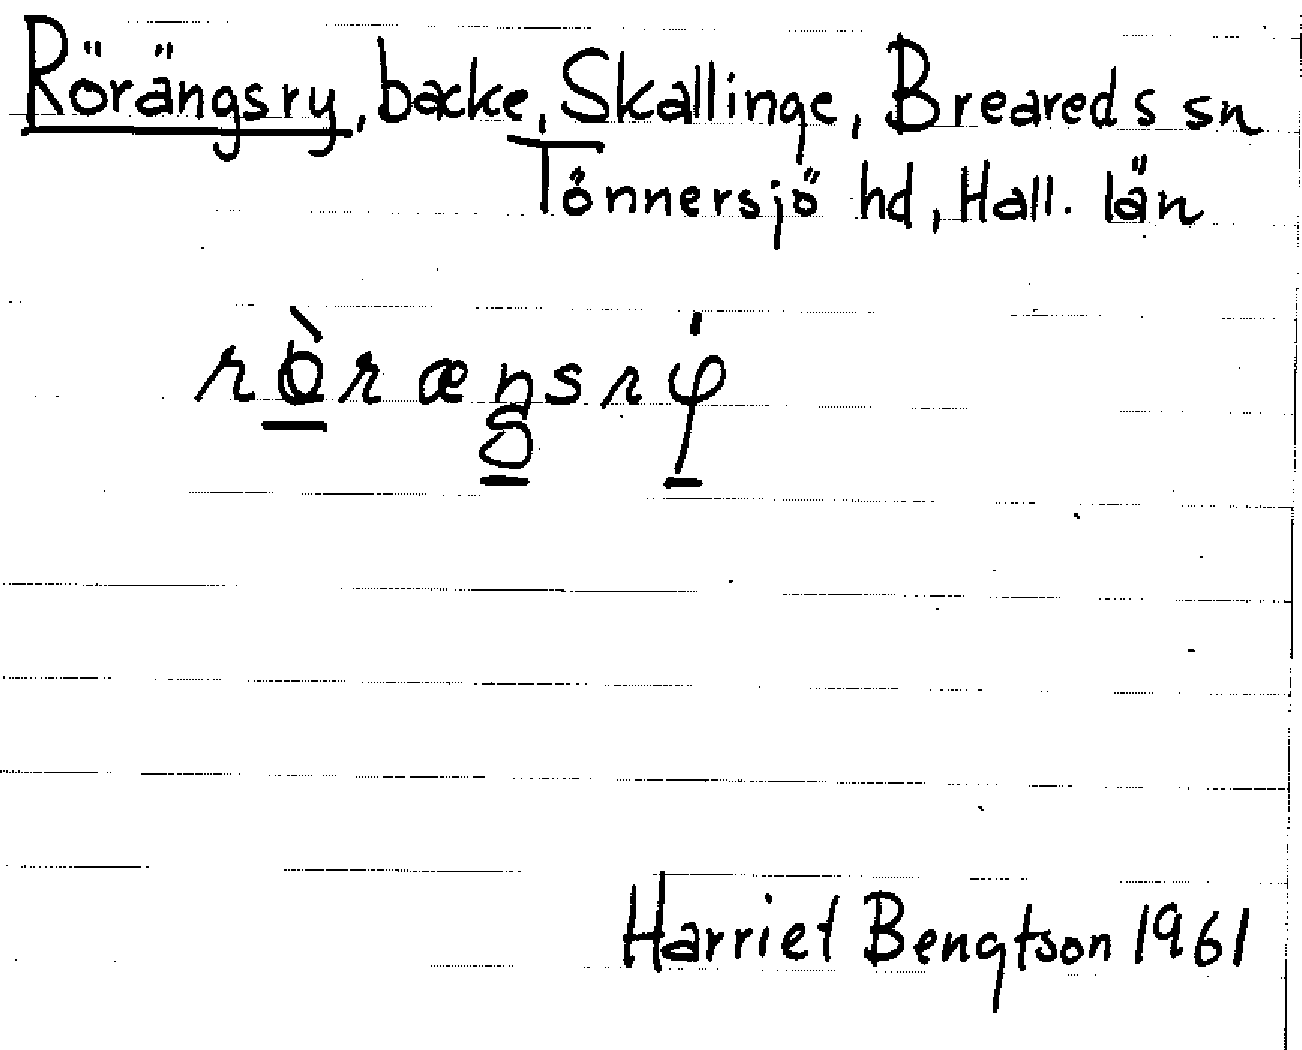 Rörängsry, backe, Skallinge, Breareds sn
Tönnersjö hd, Hall. län
rö̀ræŋsrφ
Harriet Bengtson 1961